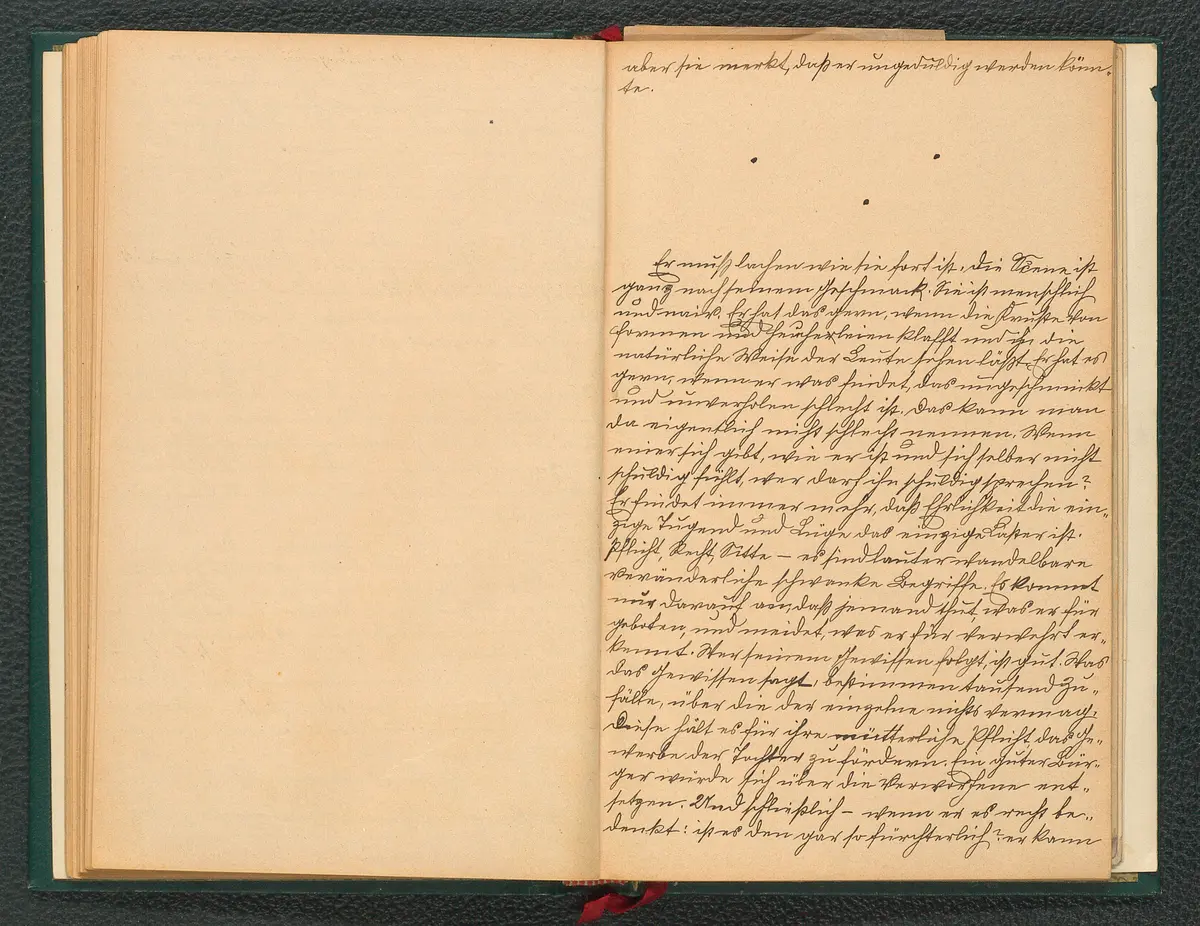 aber sie merkt, daß er ungeduldig werden könn-
te.
Er muß lachen wie sie fort ist. Die Scene ist
ganz nach seinem Geschmack. Sie ist menschlich
und naiv. Er hat das gern, wenn die Kruste von
Formen und Heucheleien klafft und ihn die
natürliche Weise der Leute sehen läßt. Er hat es
gern, wenn er was findet, das ungeschminkt
und unverholen schlecht ist. Das kann man
da eigentlich nicht schlecht nennen. Wenn
einer sich gibt, wie er ist und sich selber nicht
schuldig fühlt, wer darf ihn schuldig sprechen?
Er findet immer mehr, daß Ehrlichkeit die ein-
zige Tugend und Lüge das einzige Laster ist.
Pflicht, Recht, Sitte – es sind lauter wandelbare
veränderliche schwanke Begriffe. Es kommt
nur darauf an, daß jemand thut, was er für
geboten, und meidet, was er für verwehrt er-
kennt. Wer seinem Gewissen folgt, ist gut. Was
das Gewissen sagt, bestimmen tausend Zu-
fälle, über die der einzelne nichts vermag.
Diese hält es für ihre mütterliche Pflicht, das Ge-
werbe der Tochter zu fördern. Ein guter Bür-
ger würde sich über die Verworfene ent-
setzen. Und schließlich – wenn er es recht be-
denkt: ist es den gar so fürchterlich? er kann